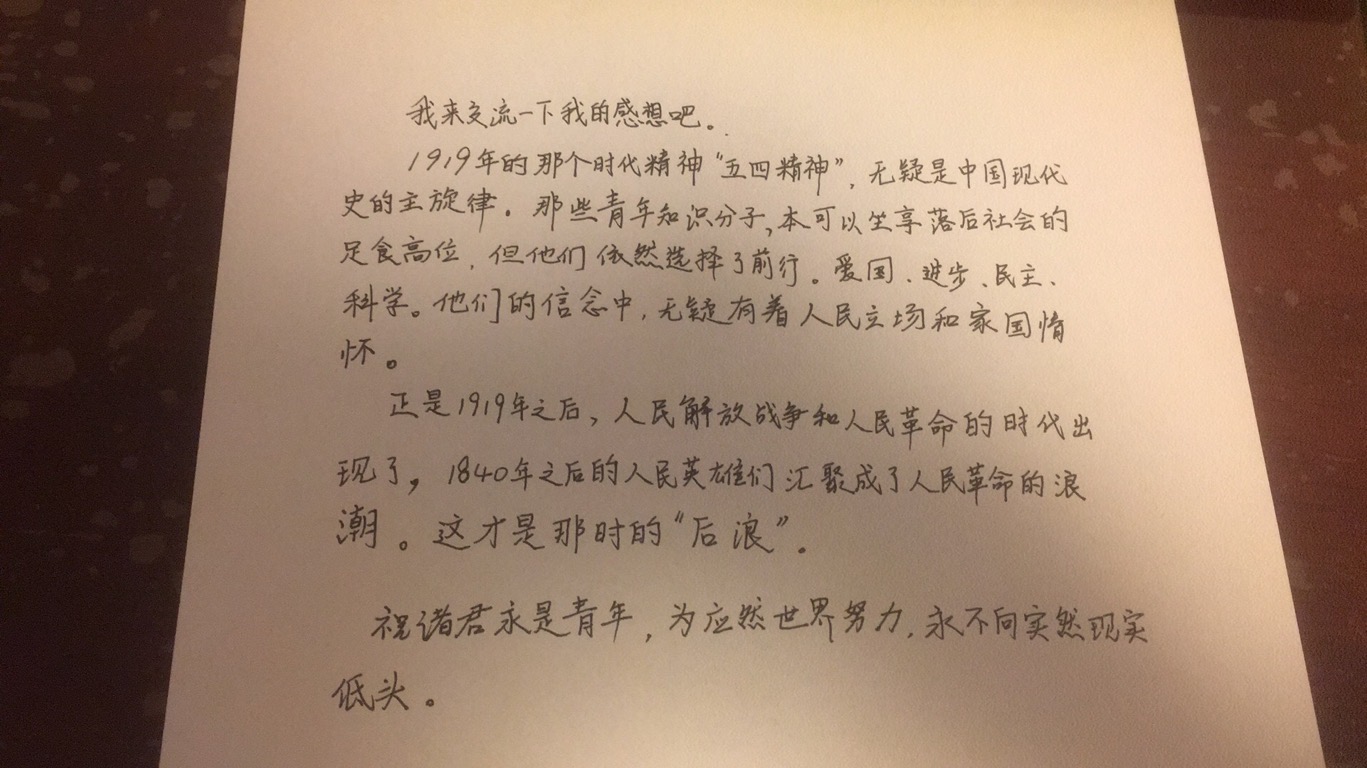 我来交流一下我的感想吧。
1919年的那个时代精神“五四精神”，无疑是中国现代
史的主旋律。那些青年知识分子，本可以坐享落后社会的
足食高位，但他们依然选择了前行。爱国、进步、民主、
科学。他们的信念中，无疑有着人民立场和家国情
怀。
正是1919年之后，人民解放战争和人民革命的时代出
现了，1840年之后的人民英雄们汇聚成了人民革命的浪
潮。这才是那时的“后浪”。
祝诸君永是青年，为应然世界努力，永不向实然现实
低头。